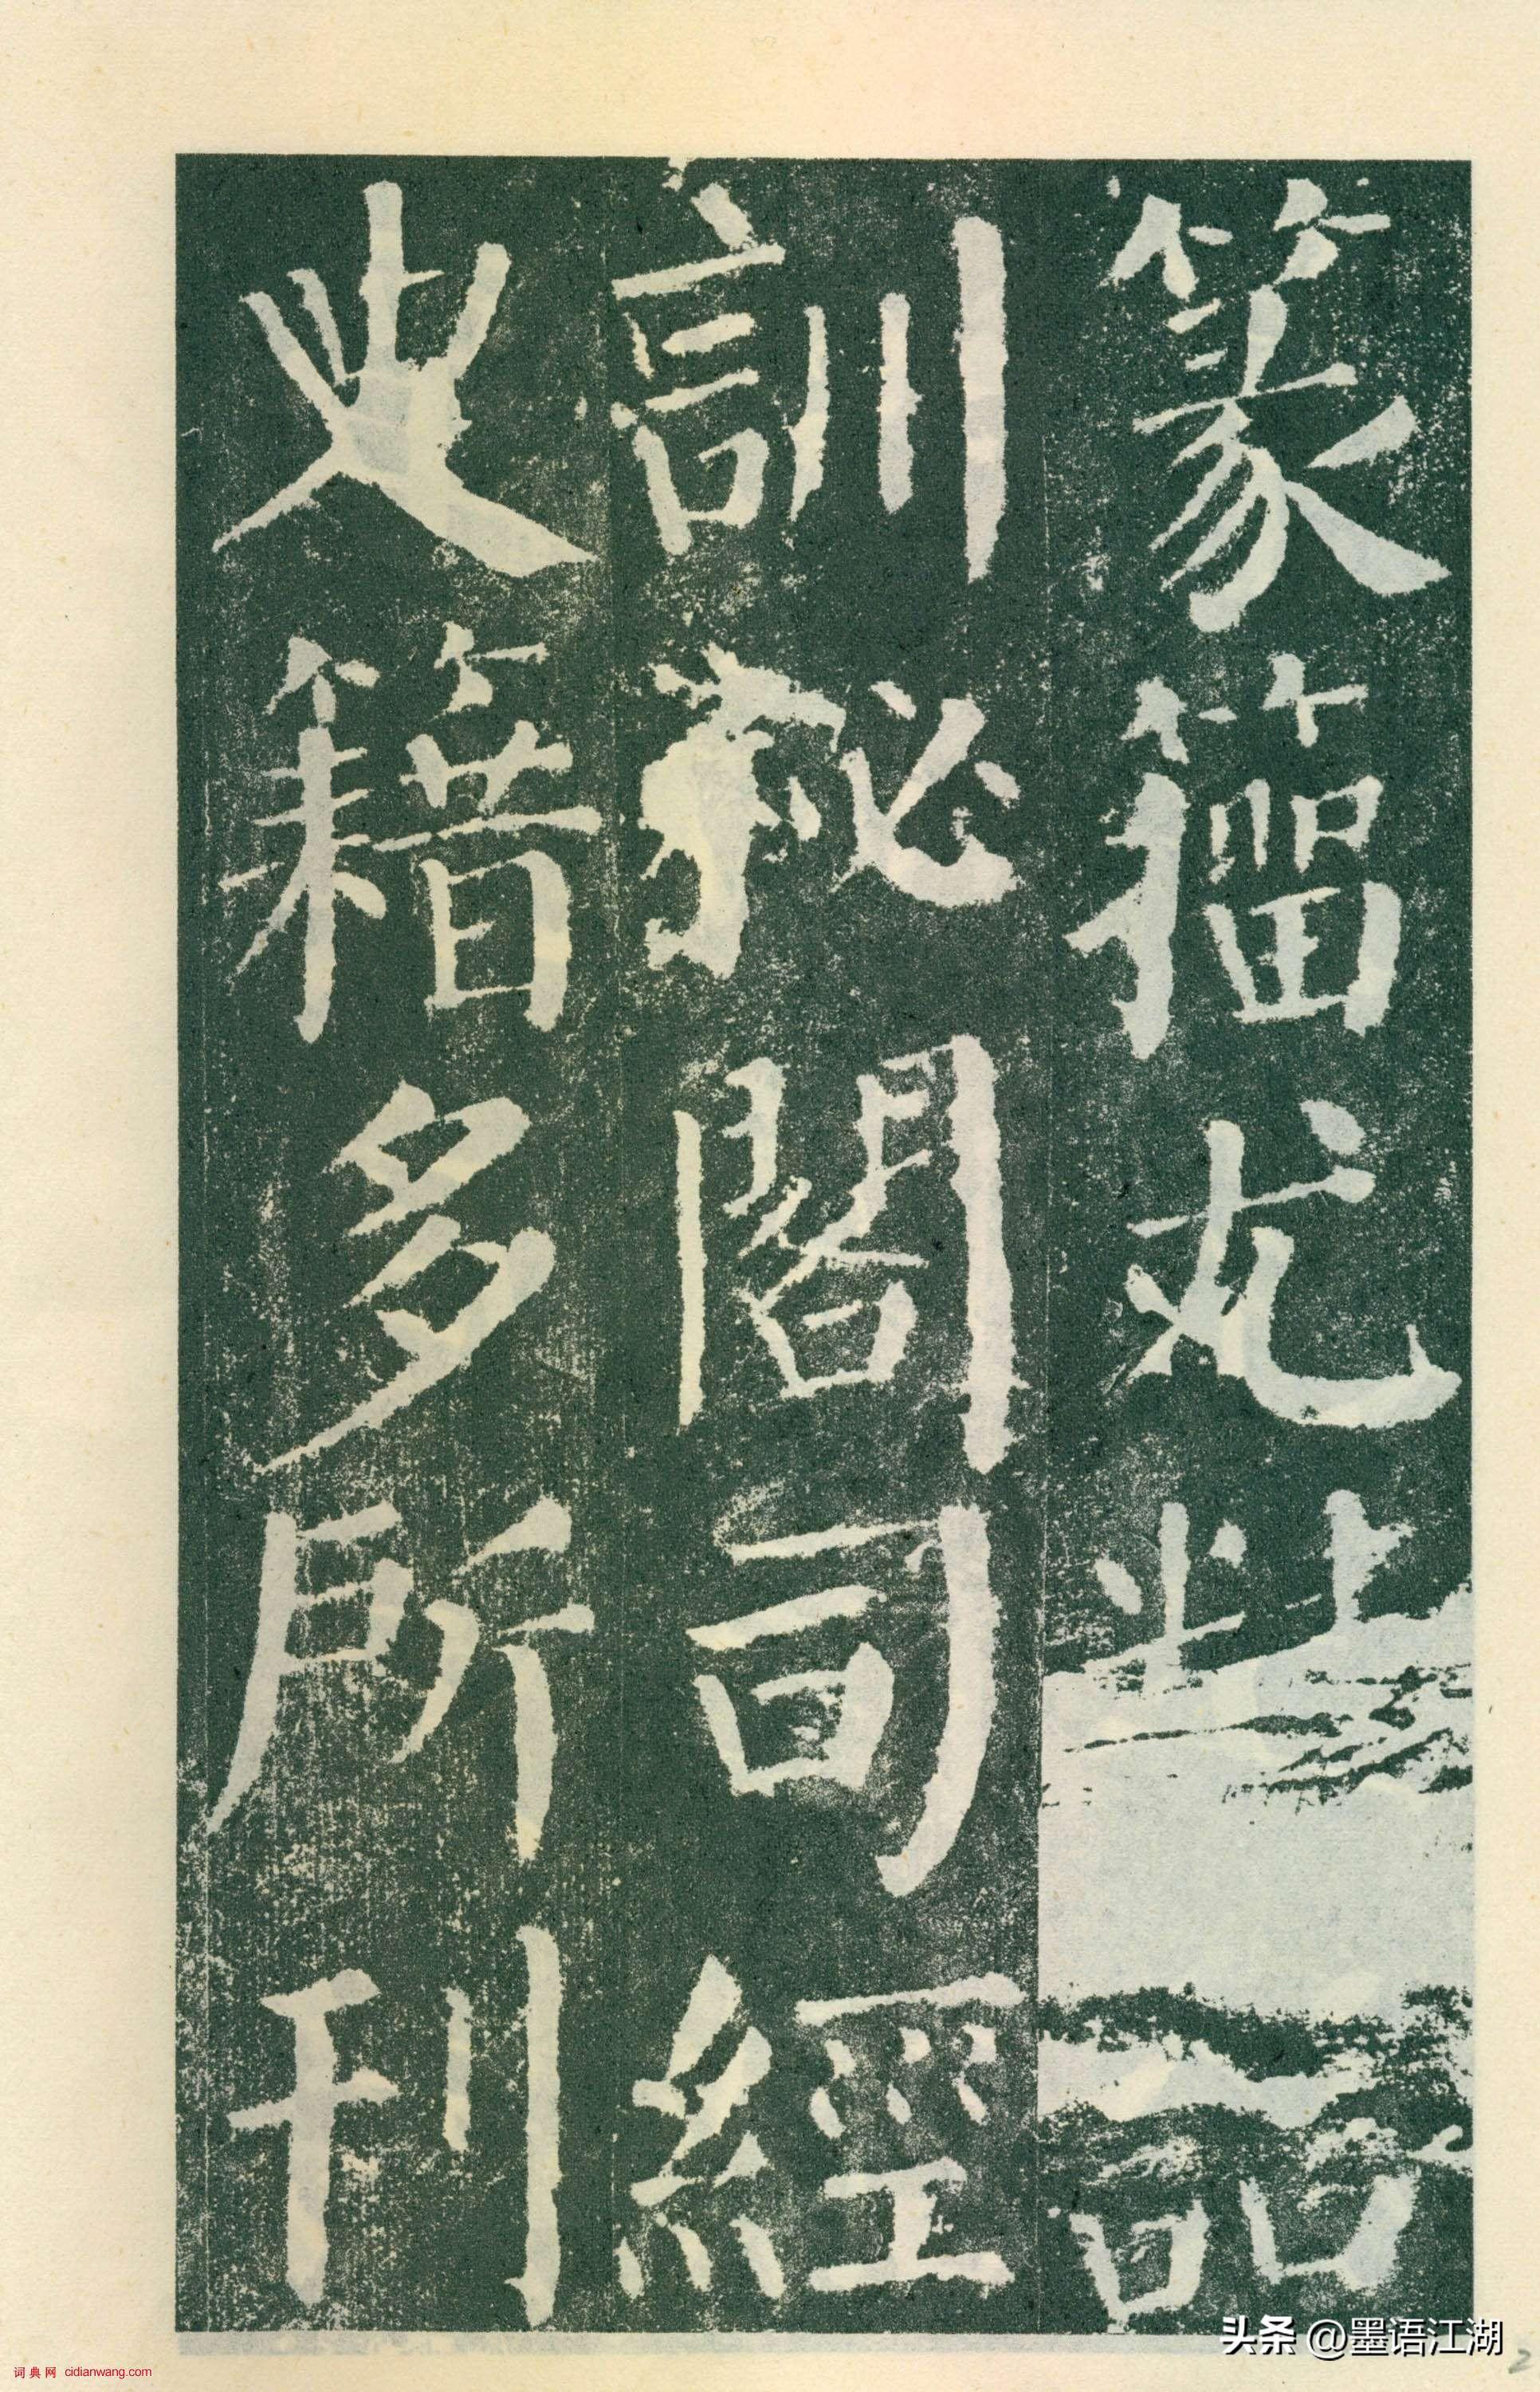 篆籀尤精詁
訓祕閣司經
史籍多所刊
头条 @墨语江湖
词典网 cidianwang.com
2